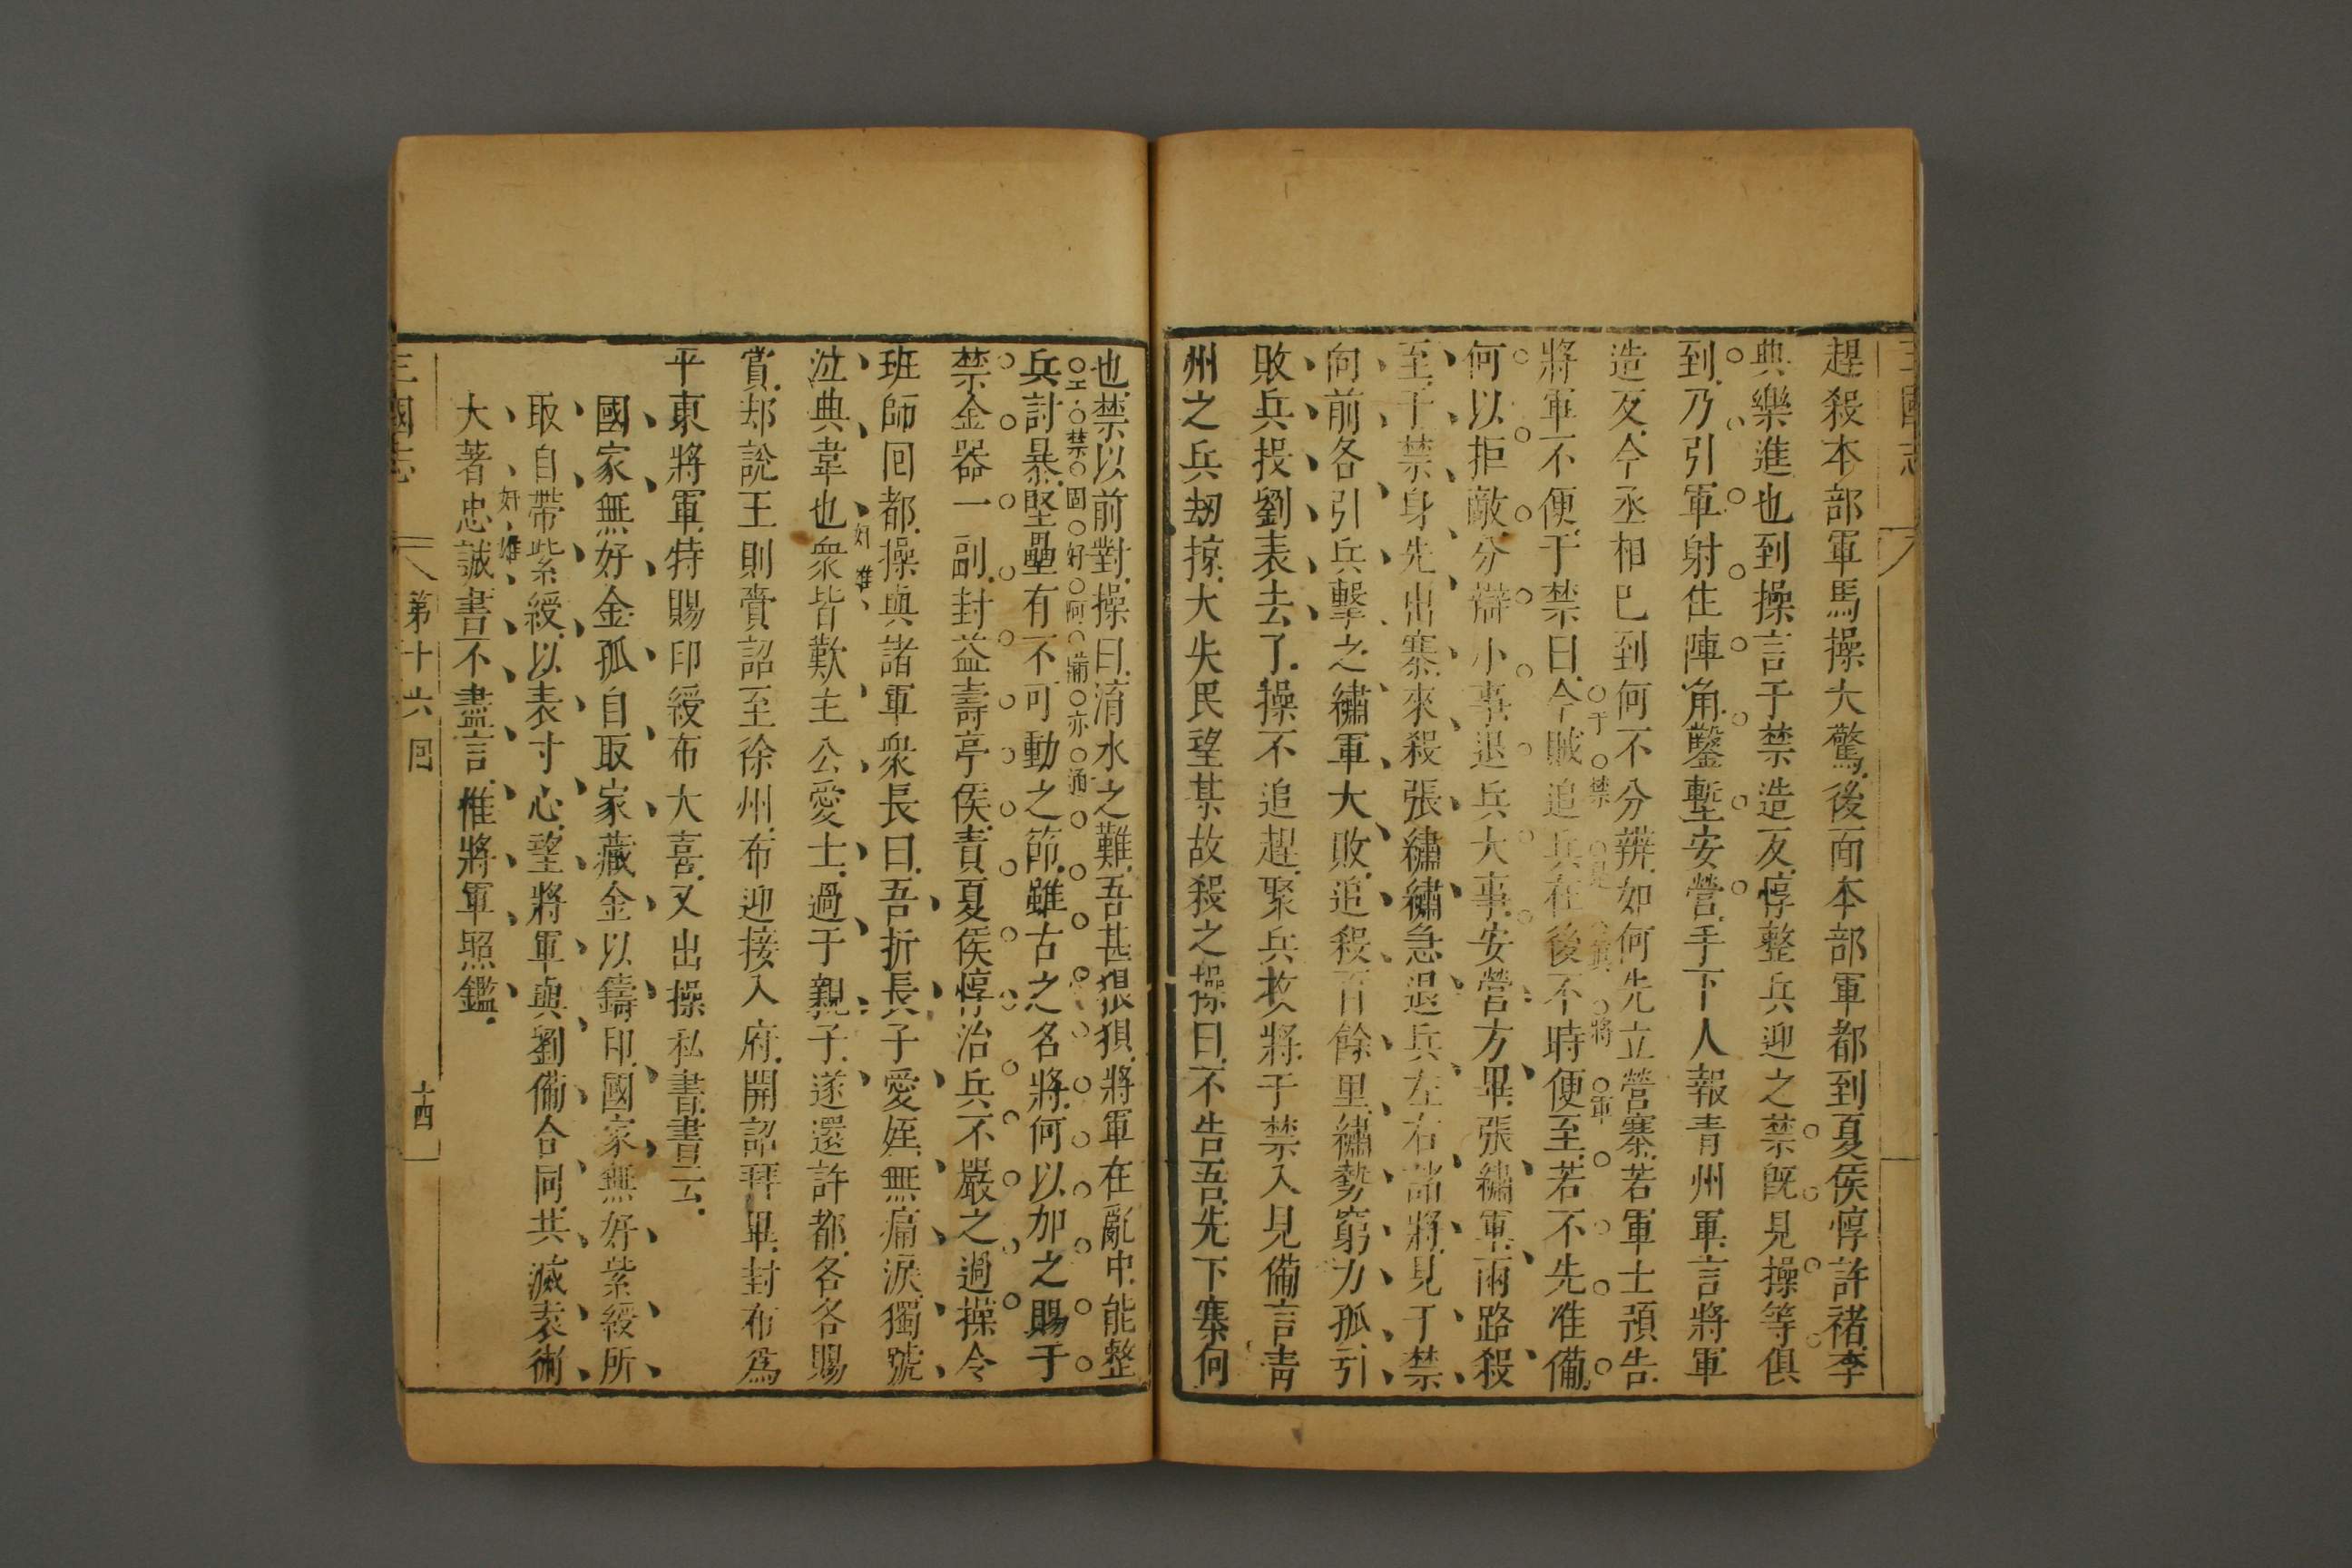 三國志
趕殺本部軍馬操大驚後面本部軍都到夏侯惇許禇李
典樂進也到操言于禁造反惇整兵迎之禁旣見操等俱
到乃引軍射住陣角鑿塹安營手下人報青州軍言將軍
造反今丞相已到何不分辨如何先立營寨若軍士預告
將軍不便于禁曰今賊追兵在後不時便至若不先准備
于禁是真將軍
何以拒敵分辯小事退兵大事安營方畢張繡軍兩路殺
至于禁身先出寨來殺張繡繡急退兵左右諸將見于禁
向前各引兵擊之繡軍大敗追殺百餘里繡勢窮力孤引
敗兵投劉表去了操不追趕聚兵收將于禁入見備言青
州之兵刼掠大失民望某故殺之操曰不告吾先下寨何
也禁以前對操曰淯水之難吾甚狼狽將軍在亂中能整
禁固好阿瞞亦通
兵討暴堅壘有不可動之節雖古之名將何以加之賜于
禁金器一副封益壽亭侯責夏侯惇治兵不嚴之過操令
班師囘都操與諸軍衆長曰吾折長子愛姪無痛淚獨號
泣典韋也衆皆歎主公愛士過于親子遂還許都各各賜
奸雄
賞却說王則賫詔至徐州布迎接入府開詔拜畢封布爲
平東將軍特賜印綬布大喜又出操私書書云
國家無好金孤自取家藏金以鑄印國家無好紫綬所
取自帶紫綬以表寸心望將軍與劉備合同共滅袁術
奸雄
大著忠誠書不盡言惟將軍照鑑
三國志 第十六囘 十四